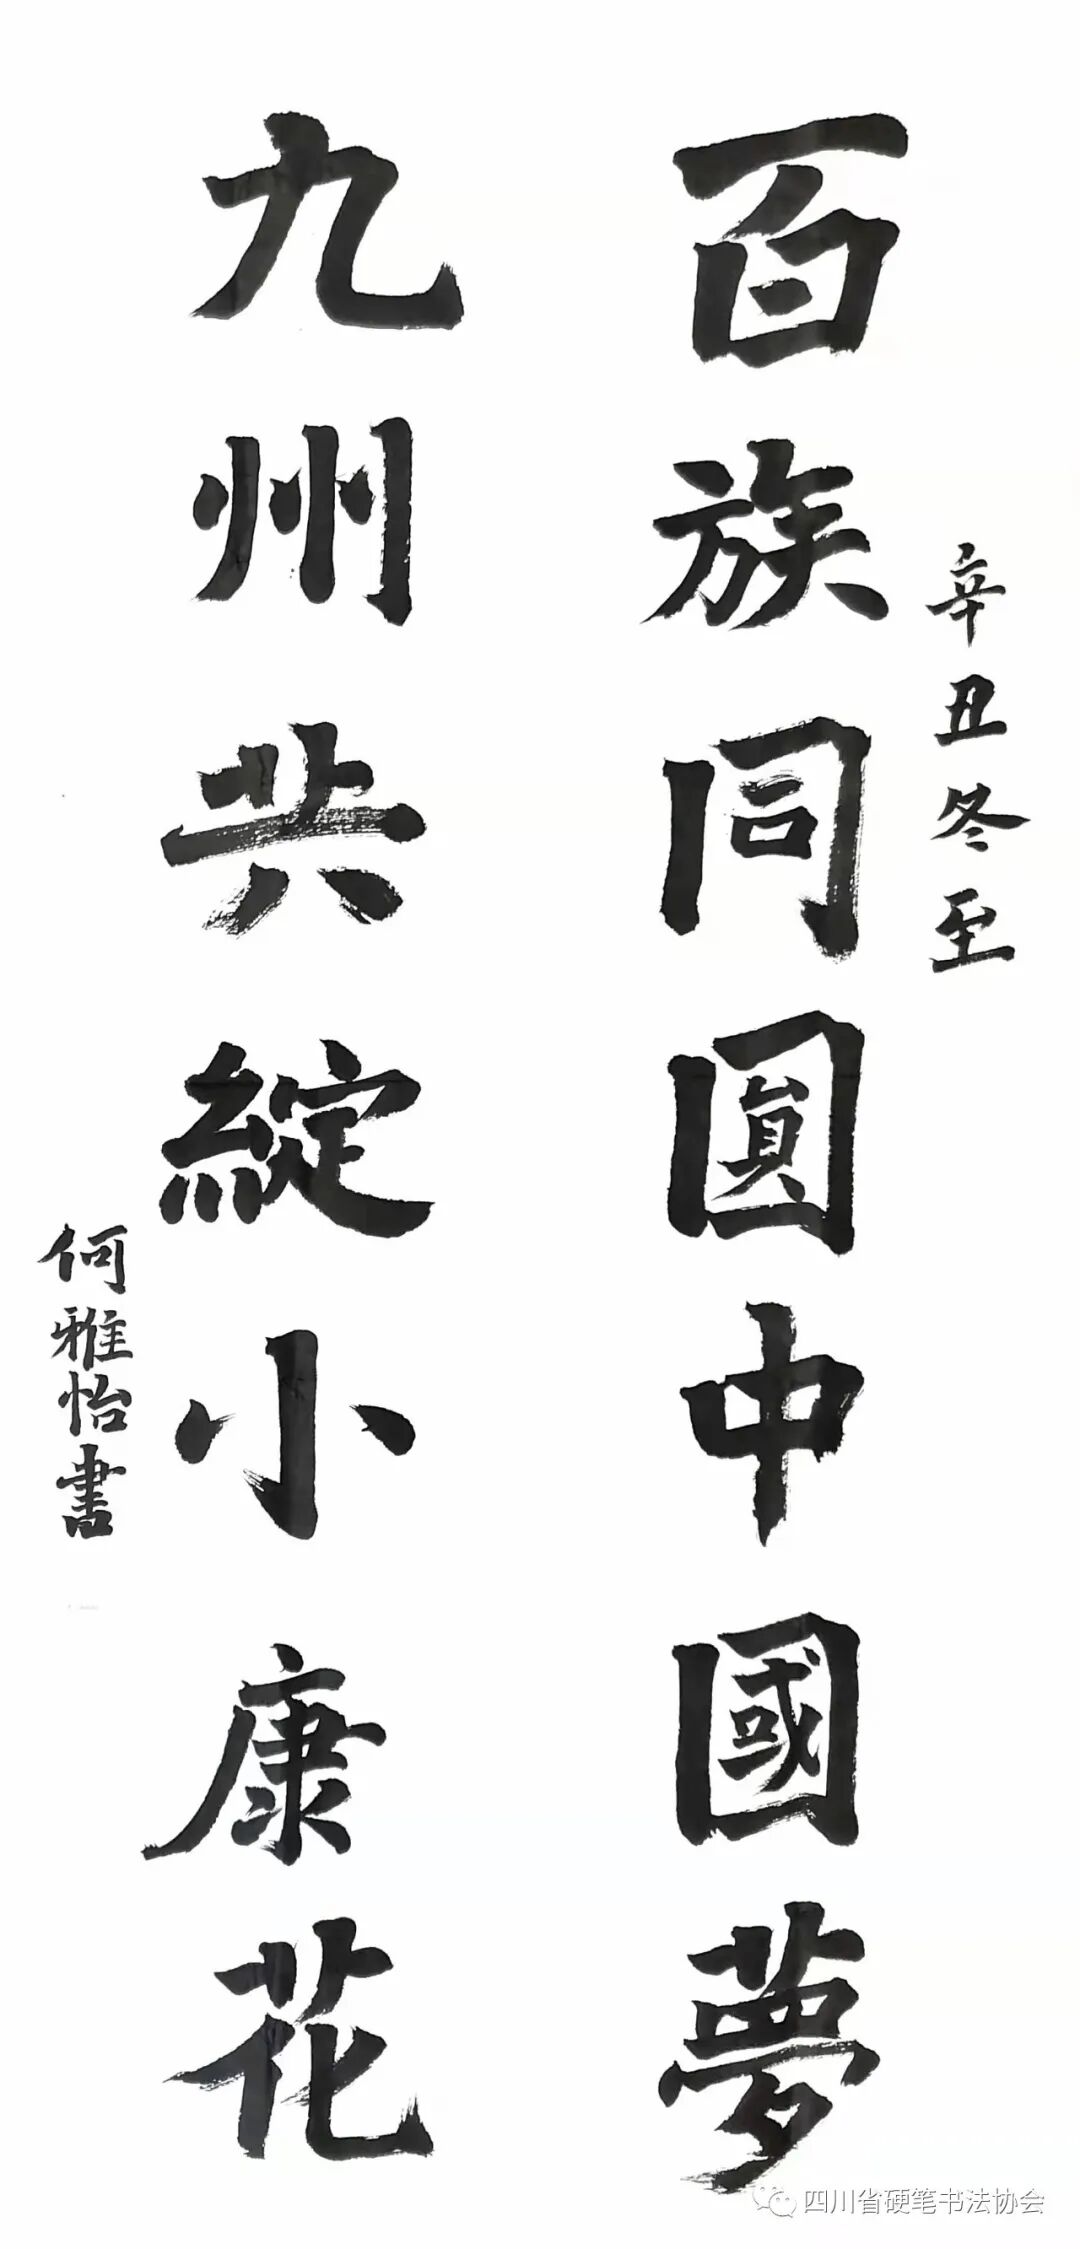 辛丑冬至
百族同圓中國夢
九州共綻小康花
何雅怡書
四川省硬笔书法协会